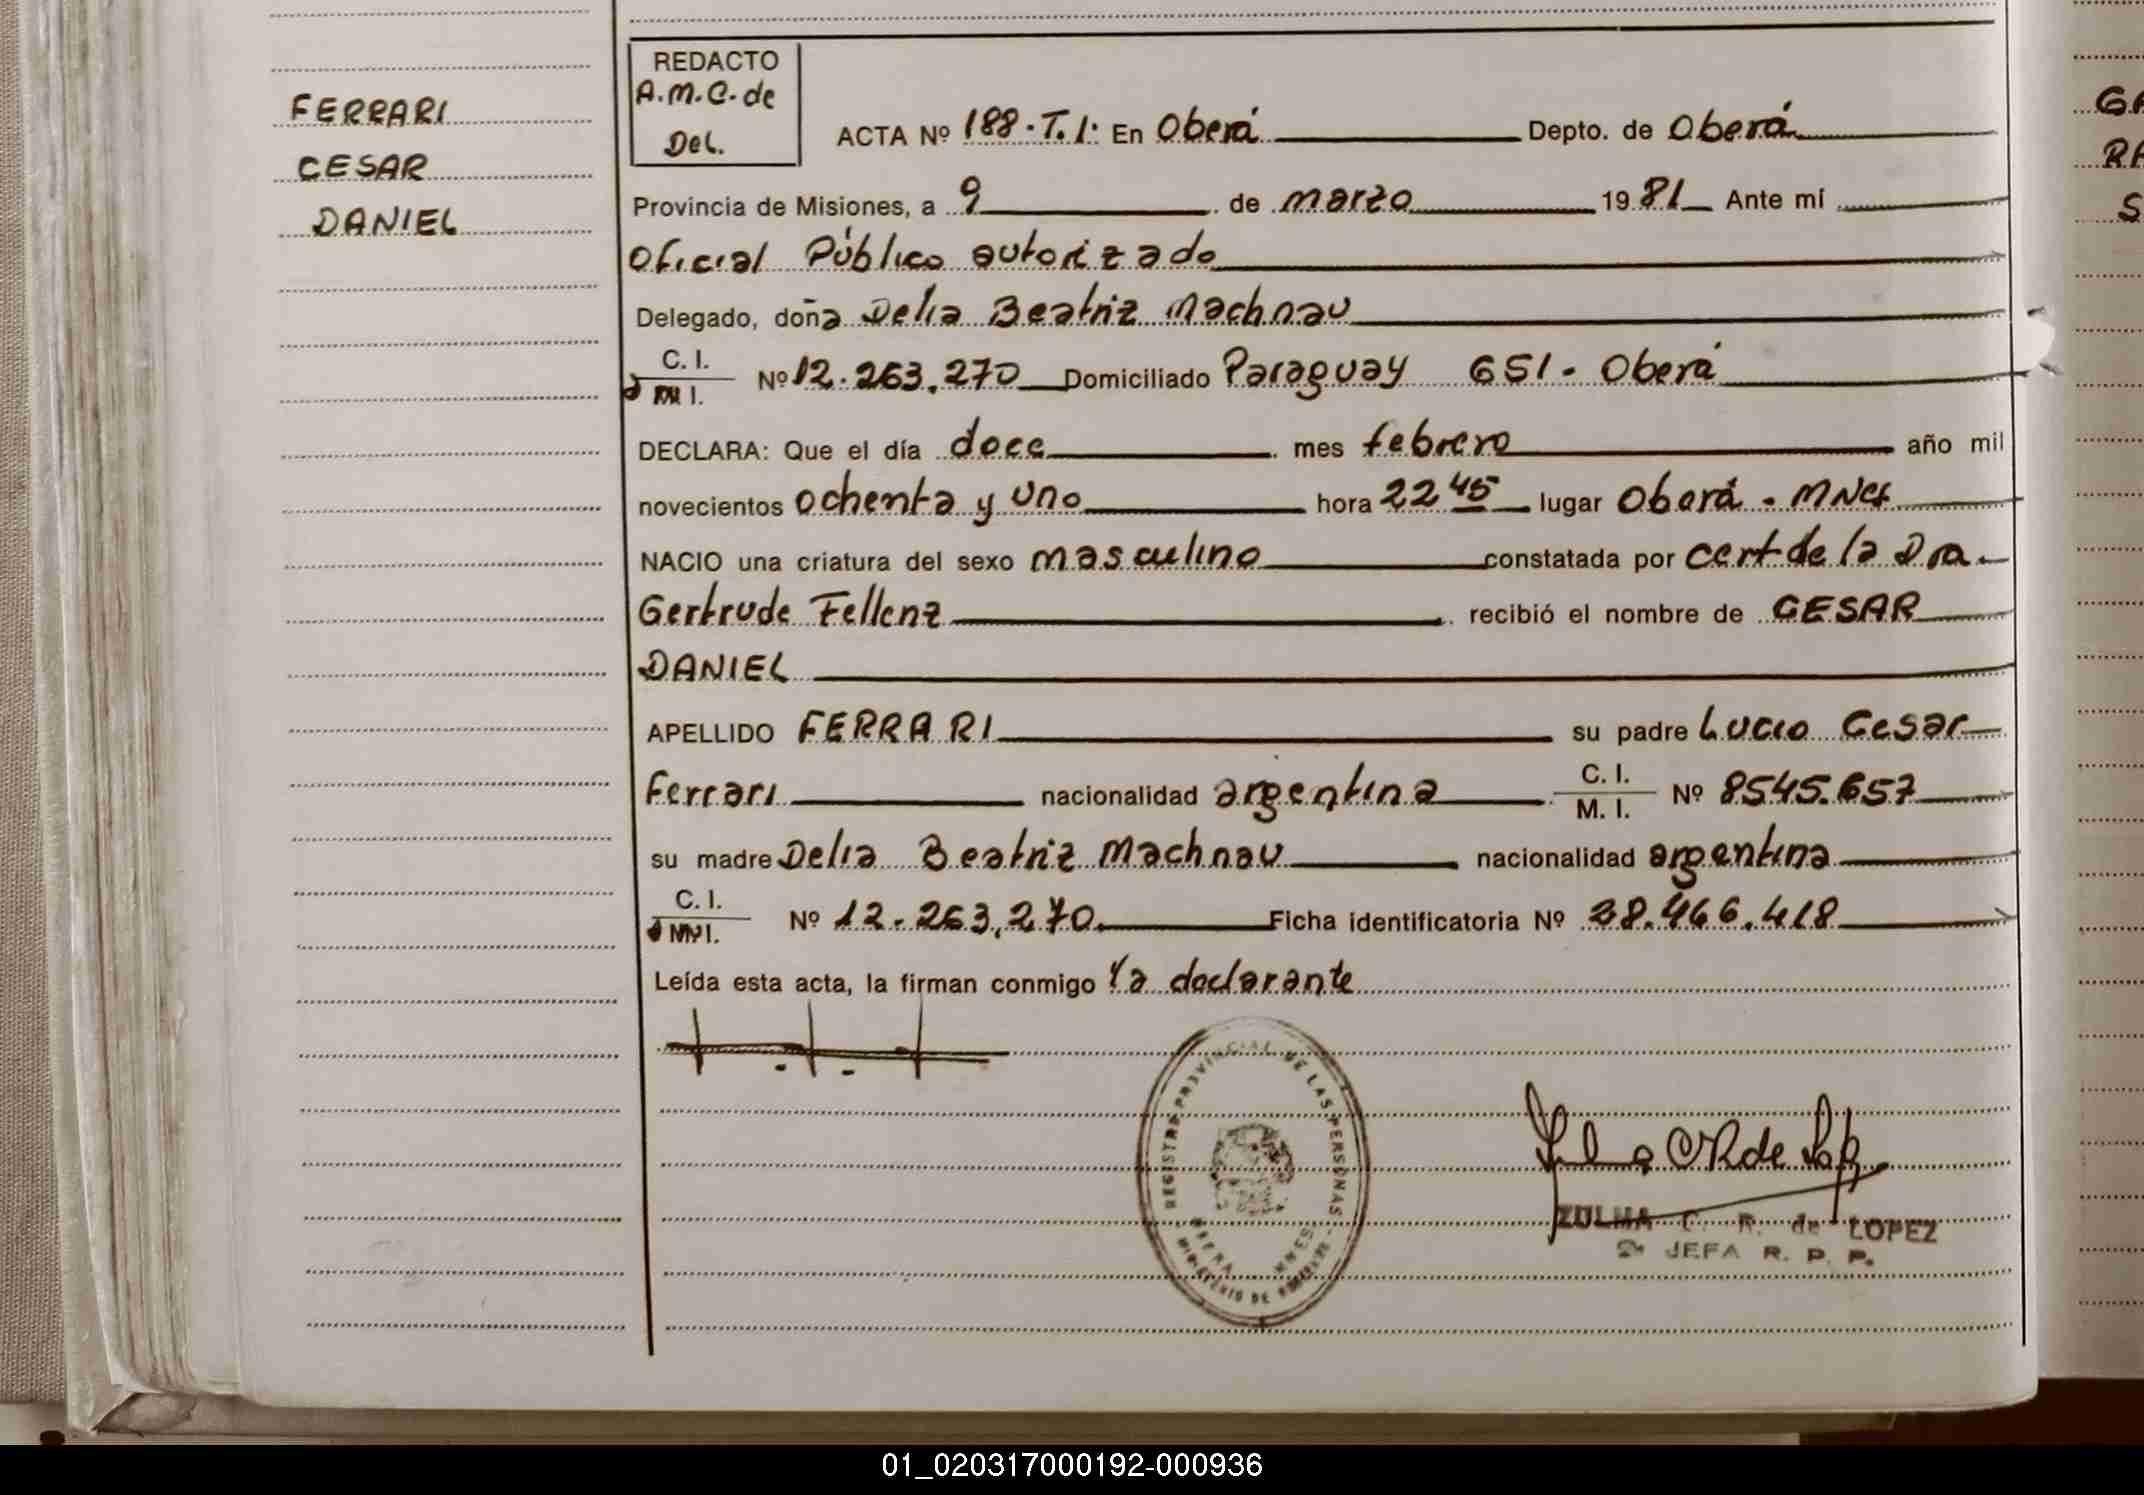 FERRARI
CESAR
DANIEL
REDACTO
A.M.C. de
Del.
ACTA Nº 188.T.I. En Oberá Depto. de Oberá
Provincia de Misiones, a 9 de marzo 1981 Ante mí
Oficial Público autorizado
Delegado, doña Delia Beatriz Machnau
C. I.
M. I.
Nº 12.263.270 Domiciliado Paraguay 651 - Oberá
DECLARA: Que el día doce mes febrero año mil
novecientos ochenta y uno hora 22 45 lugar Oberá - MNES
NACIO una criatura del sexo masculino constatada por cert de la Dra
Gertrude Fellenz recibió el nombre de CESAR
DANIEL
APELLIDO FERRARI su padre Lucio Cesar
Ferrari nacionalidad argentina C. I. M. I. Nº 8545.657
su madre Delia Beatriz Machnau nacionalidad argentina
C. I.
M. I.
Nº 12.263.270 Ficha identificatoria Nº 28.466.418
Leída esta acta, la firman conmigo la declarante
REGISTRO PROVINCIAL DE LAS PERSONAS
MINISTERIO DE GOBIERNO
OBERA MNES
ZULMA C. R. de LOPEZ
JEFA R. P. P.
GA
RA
S
01_020317000192-000936